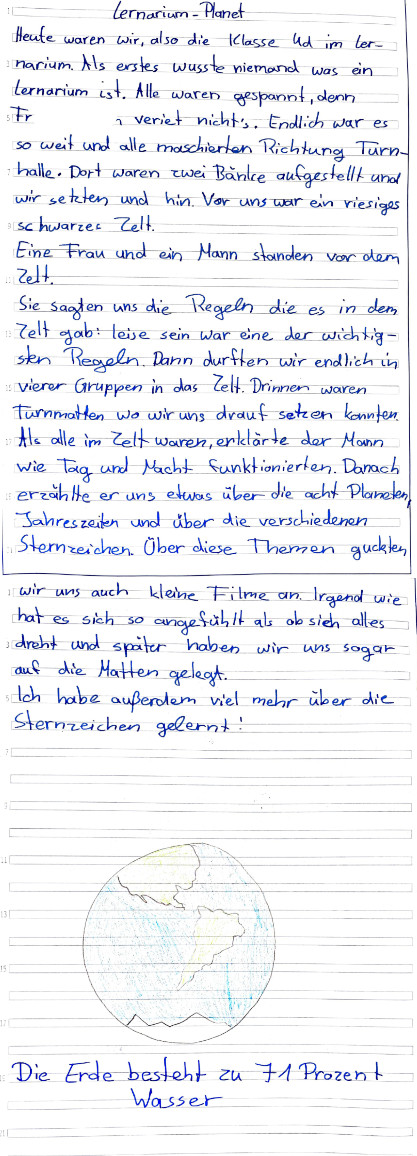 Lernarium-Planet
Heute waren wir, also die Klasse 4d im Ler-
narium. Als erstes wusste niemand was ein
Lernarium ist. Alle waren gespannt, denn
Fr veriet nicht's. Endlich war es
so weit und alle maschierten Richtung Turn-
halle. Dort waren zwei Bänke aufgestellt und
wir setzten und hin. Vor uns war ein riesiges
schwarzes Zelt.
Eine Frau und ein Mann standen vor dem
Zelt.
Sie sagten uns die Regeln die es in dem
Zelt gab: leise sein war eine der wichtig-
sten Regeln. Dann durften wir endlich in
vierer Gruppen in das Zelt. Drinnen waren
Turnmatten wo wir uns drauf setzen konnten.
Als alle im Zelt waren, erklärte der Mann
wie Tag und Nacht funktionierten. Danach
erzählte er uns etwas über die acht Planeten,
Jahreszeiten und über die verschiedenen
Sternzeichen. Über diese Themen guckten
wir uns auch kleine Filme an. Irgend wie
hat es sich so angefühlt als ob sich alles
dreht und später haben wir uns sogar
auf die Matten gelegt.
Ich habe außerdem viel mehr über die
Sternzeichen gelernt!
Die Erde besteht zu 71 Prozent
Wasser